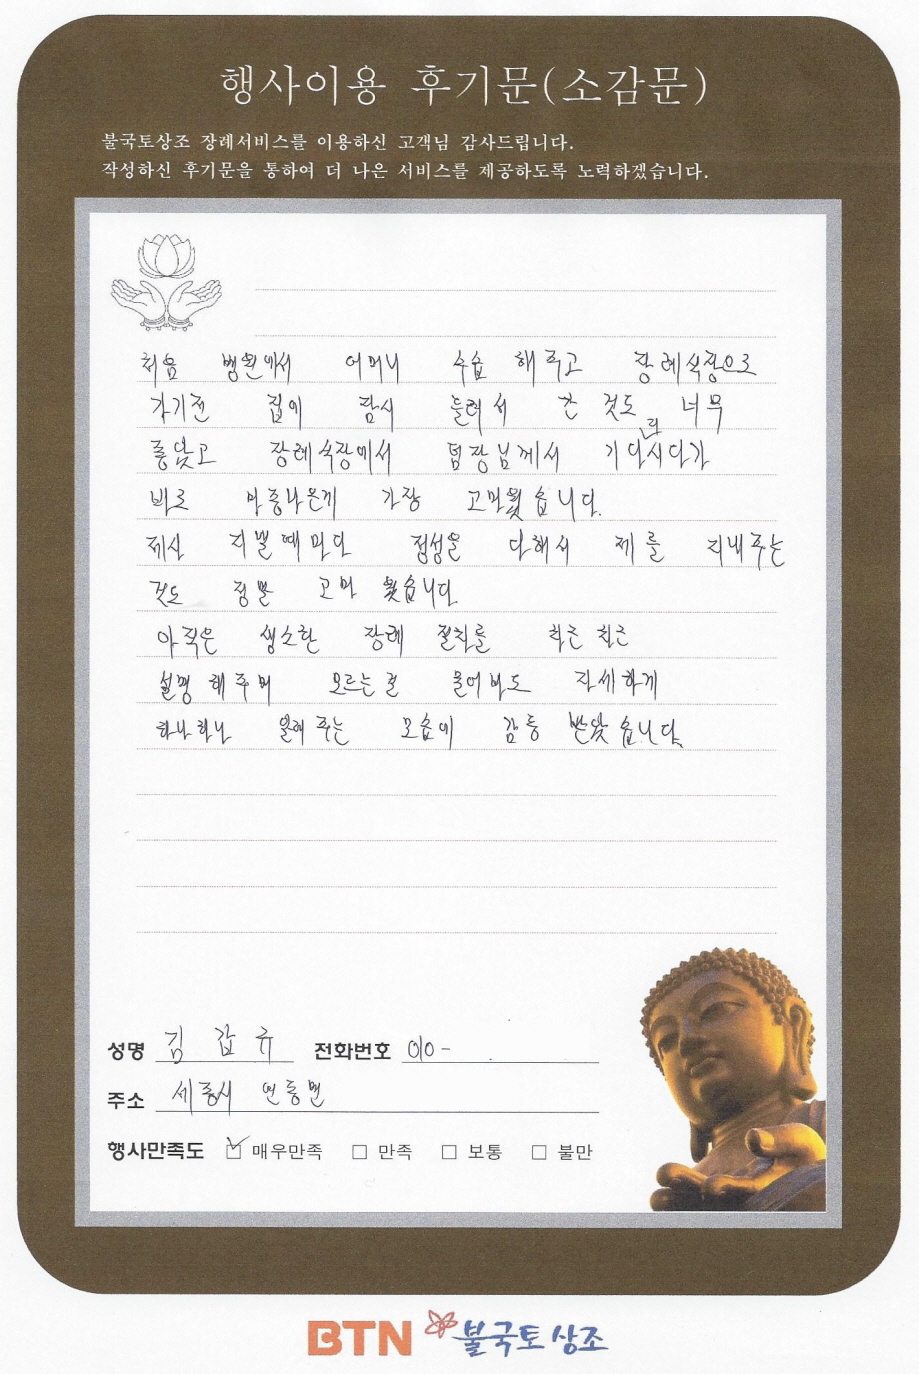 행사이용 후기문(소감문)
불국토상조 장례서비스를 이용하신 고객님 감사드립니다.
작성하신 후기문을 통하여 더 나은 서비스를 제공하도록 노력하겠습니다.
처음 병원에서 어머니 수습 해 주고 장례식장으로
가기전 집에 잠시 들려서 간 것도 너무
좋았고 장례식장에서 팀장님께서 기다리시다가
바로 마중나온게 가장 고마웠습니다.
제사 지낼때마다 정성을 다해서 제를 지내주는
것도 정말 고마웠습니다.
아직은 생소한 장례 절차를 차근 차근
설명 해주며 모르는걸 물어봐도 자세하게
하나하나 알려주는 모습에 감동 받았습니다.
성명 김 갑 규 전화번호 010-
주소 세종시 연동면
행사만족도 ☑ 매우만족 □ 만족 □ 보통 □ 불만
BTN 불국토상조